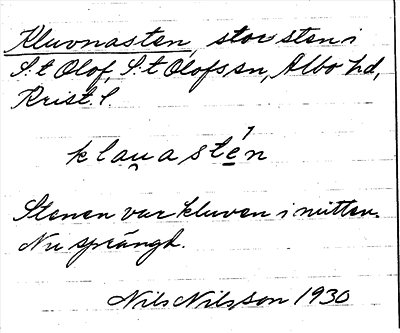 Kluvnasten, stor sten i
S:t Olof, S:t Olofs sn, Albo hd,
Krist. l
klau̯astén
Stenen var kluven i mitten.
Nu sprängd.
Nils Nilsson 1930